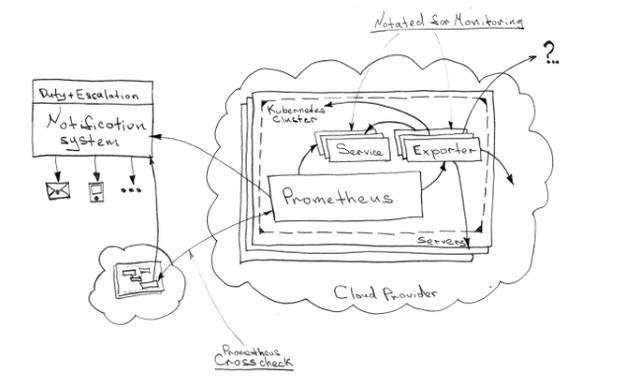 Notated for Monitoring
?..
Duty+Escalation
Notification
system
Kubernetes
Cluster
Service
Exporter
Prometheus
Servers
Cloud Provider
Prometheus
Crosscheck